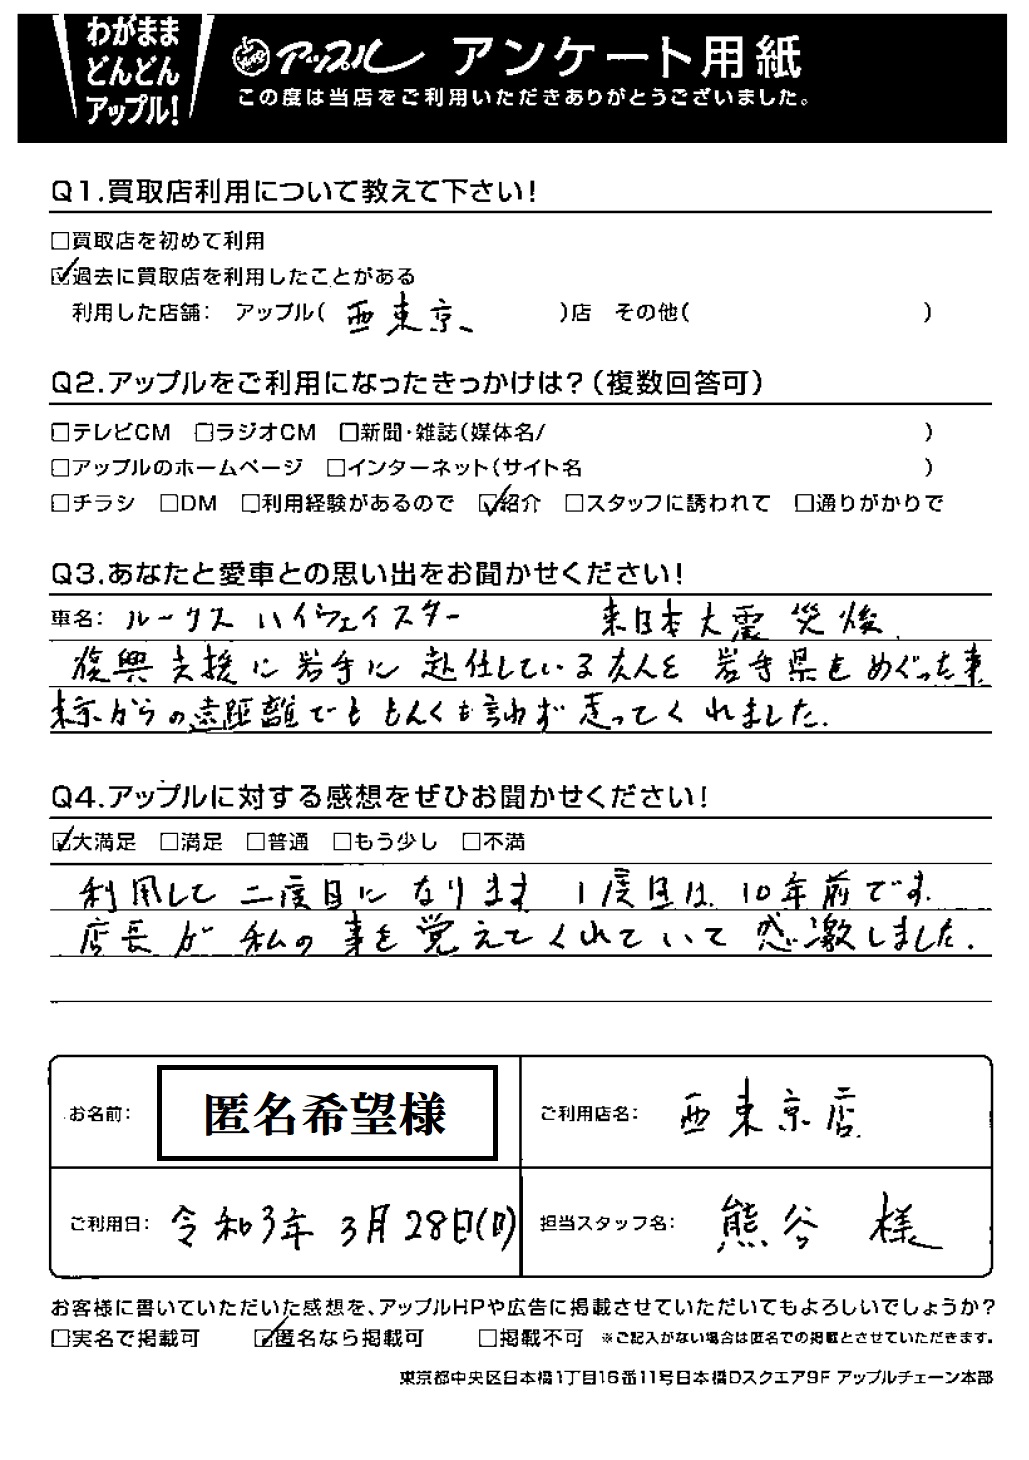 わがまま
どんどん
アップル!
アップル アンケート用紙
この度は当店をご利用いただきありがとうございました。
Q1.買取店利用について教えて下さい!
□買取店を初めて利用
☑過去に買取店を利用したことがある
利用した店舗: アップル( 西東京 )店 その他( )
Q2.アップルをご利用になったきっかけは?(複数回答可)
□テレビCM □ラジオCM □新聞・雑誌(媒体名/ )
□アップルのホームページ □インターネット(サイト名 )
□チラシ □DM □利用経験があるので ☑紹介 □スタッフに誘われて □通りがかりで
Q3.あなたと愛車との思い出をお聞かせください!
車名: ルークス ハイウェイスター 東日本大震災後、
復興支援に岩手に赴任している友人と岩手県をめぐった東
京からの遠距離でももんくも言わず走ってくれました.
Q4.アップルに対する感想をぜひお聞かせください!
☑大満足 □満足 □普通 □もう少し □不満
利用して二度目になります 1度目は10年前です.
店長が私の事を覚えてくれていて感激しました.
お名前: 匿名希望様
ご利用店名: 西東京店
ご利用日: 令和3年3月28日(日)
担当スタッフ名: 熊谷 様
お客様に書いていただいた感想を、アップルHPや広告に掲載させていただいてもよろしいでしょうか?
□実名で掲載可 ☑匿名なら掲載可 □掲載不可 ※ご記入がない場合は匿名での掲載とさせていただきます。
東京都中央区日本橋1丁目16番11号日本橋Dスクエア9F アップルチェーン本部